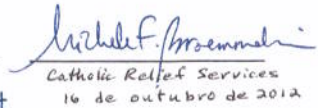 Michele F. Broemmelsiek
Catholic Relief Services
16 de outubro de 2012